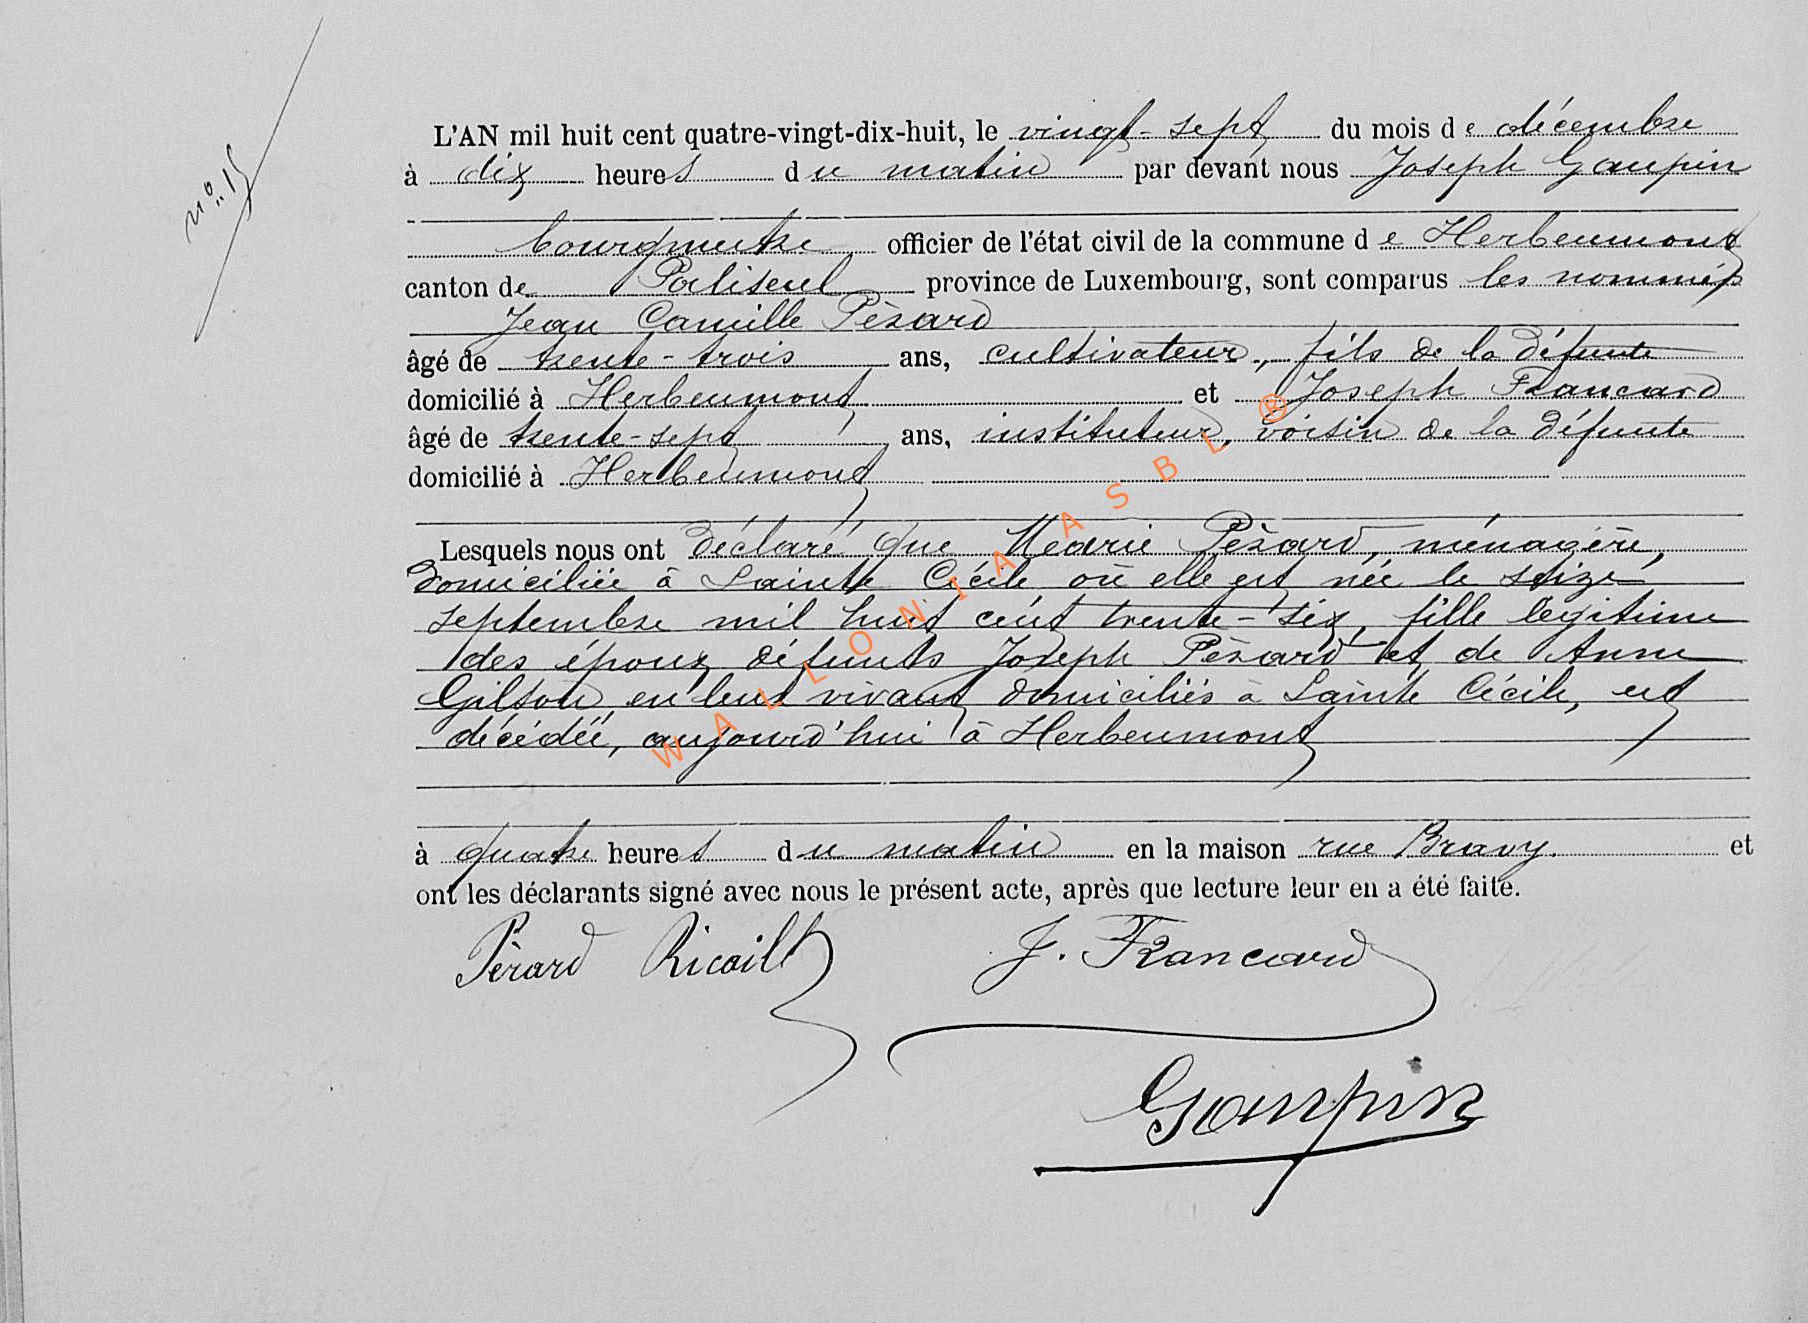 n° 15
L'AN mil huit cent quatre-vingt-dix-huit, le vingt-sept du mois de décembre
à dix heures du matin par devant nous Joseph Gaupin
bourgmestre officier de l'état civil de la commune de Herbeumont
canton de Paliseul province de Luxembourg, sont comparus les nommés
Jean Camille Pèrard
âgé de trente-trois ans, cultivateur, fils de la défunte
domicilié à Herbeumont et Joseph Francard
âgé de trente-sept ans, instituteur, voisin de la défunte
domicilié à Herbeumont
Lesquels nous ont déclaré que Marie Pèrard, ménagère,
domiciliée à Sainte Cécile où elle est née le seize
septembre mil huit cent trente-six, fille légitime
des époux défunts Joseph Pèrard et de Anne
Gilson en leur vivant domiciliés à Sainte Cécile, est
décédée, aujourd'hui à Herbeumont
à quatre heures du matin en la maison rue Bravy. et
ont les déclarants signé avec nous le présent acte, après que lecture leur en a été faite.
Pèrard J. Francard
Gaupin
WALLONIA ASBL ®